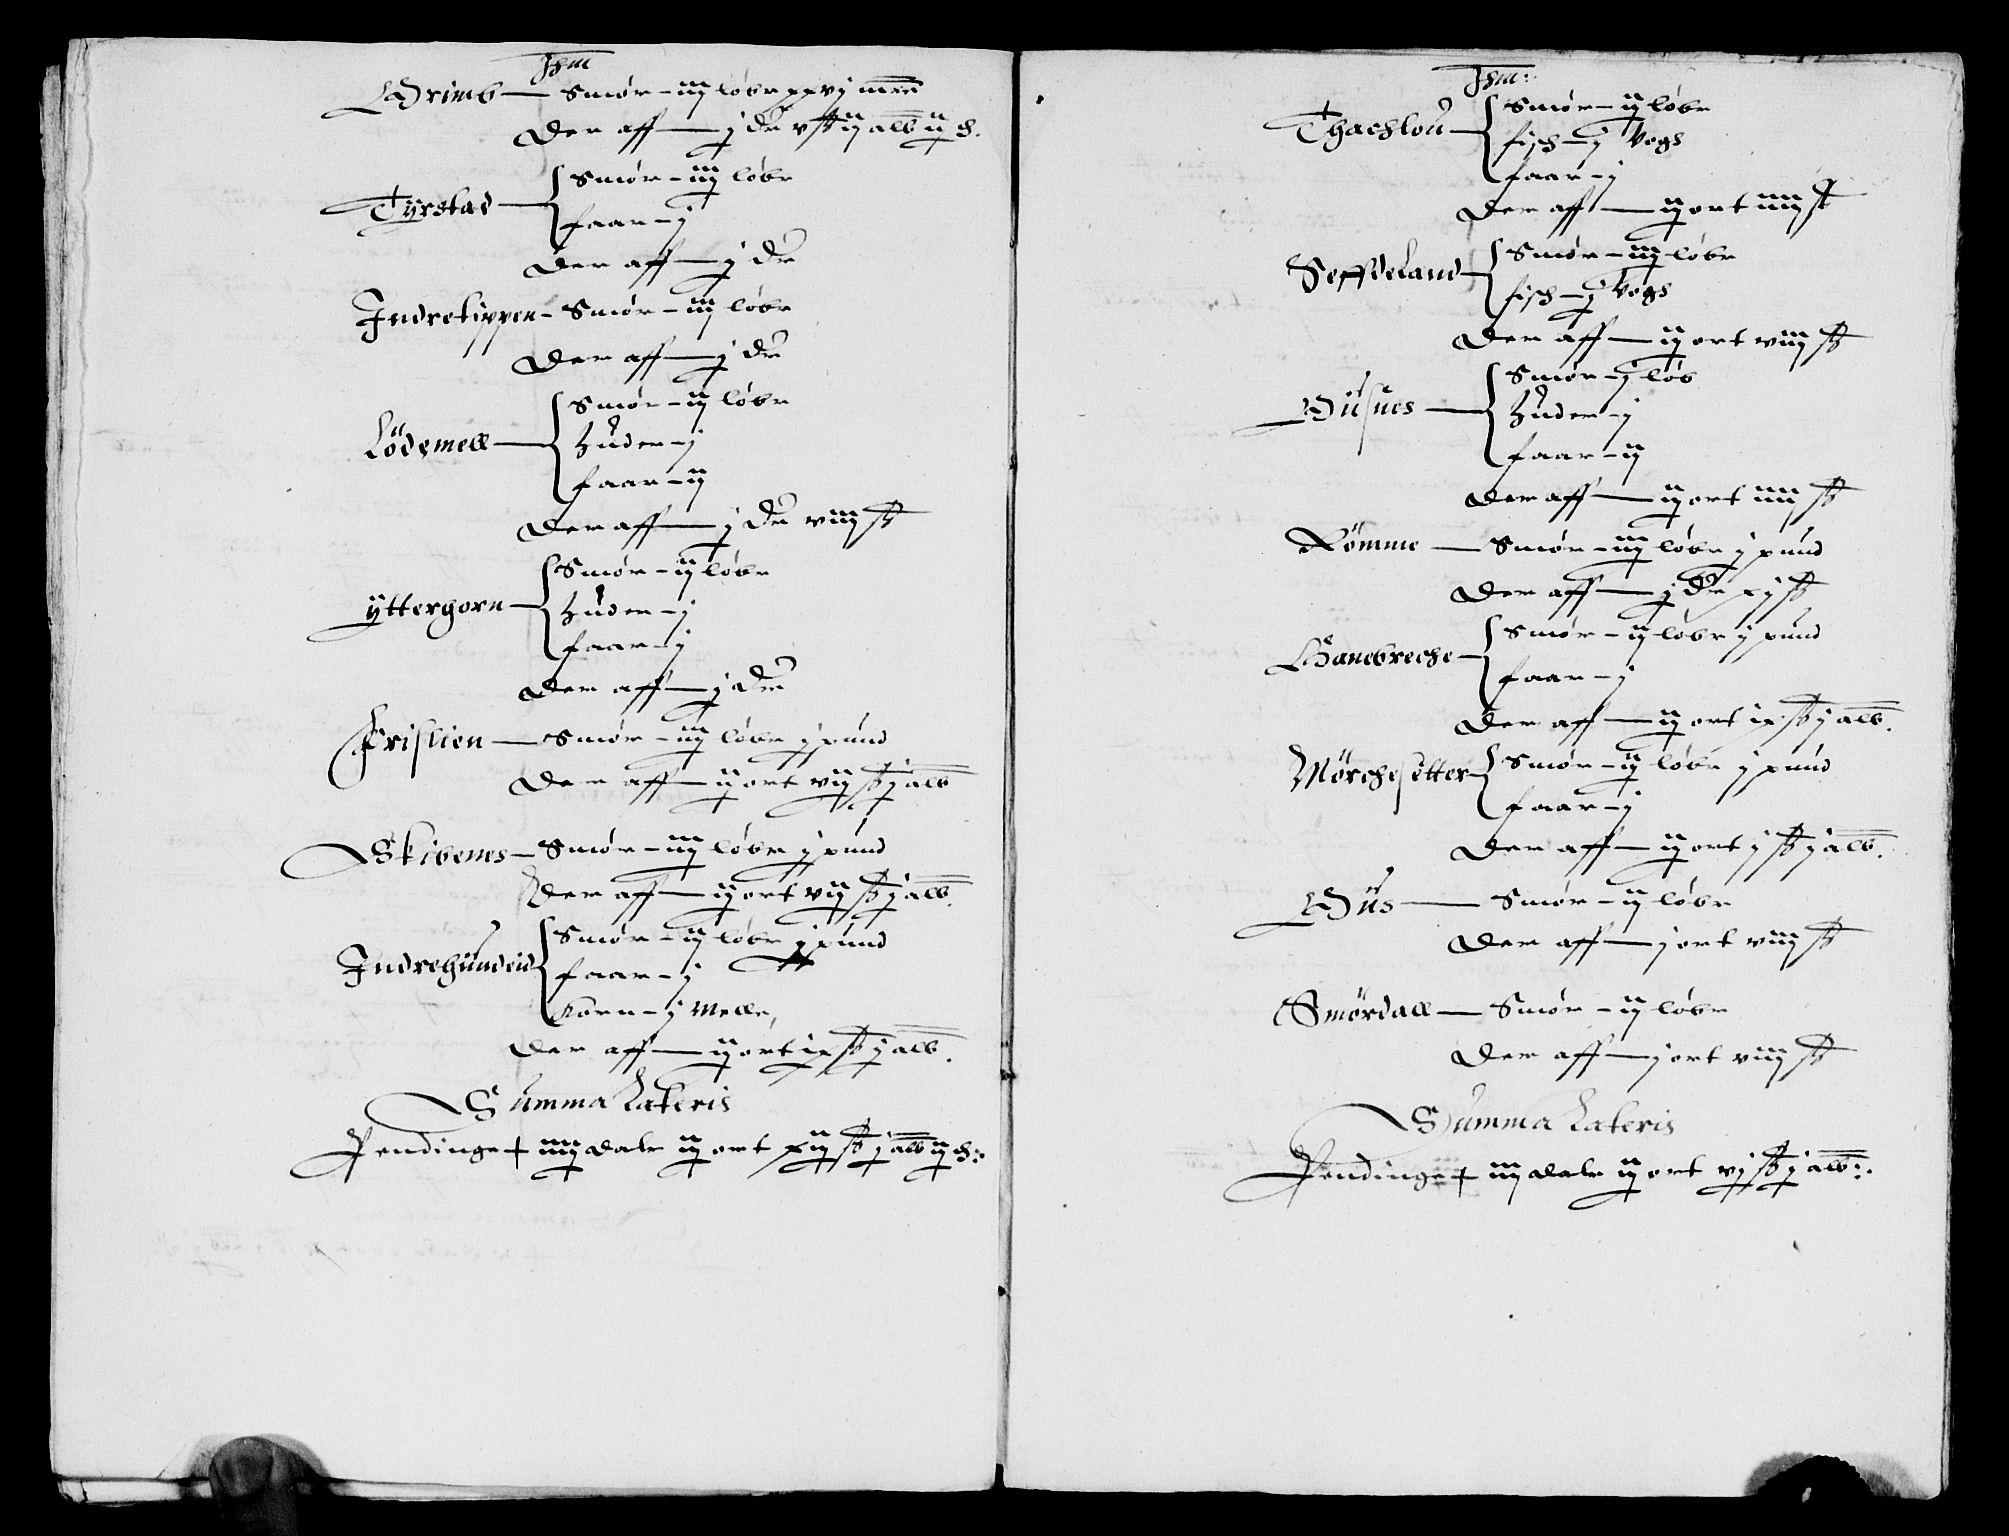 Jtem
Grimb — Smör – iij löbe xxvj mrc
Der aff — j dr v ß ij alb ij ch.
Tyrstad — Smör – iij löbe
faar – j
Der aff — j dr
Indretippen – Smör – iij löbe
Der aff — j dr
Lödemell — Smör – ij löbe
Huder – j
faar – ij
Der aff — j dr viij ß
Yttergorn — Smör – ij löbe
Huder – j
faar – j
Der aff — j dr
Frislien — Smör – iij löbe j pund
Der aff — ij ort vij ß j alb
Skibenes – Smör – iij löbe j pund
Der aff — ij ort vij ß j alb.
Indrehundeid Smör – ij löbe j pund
faar – j
Korn – j Melle,
Der aff — ij ort ix ß j alb.
Summa Lateris
Pendinge + iiij dale ij ort xij ß j alb ij ch:
Jtem:
Thachlou — Smör – ij löbe
fisch – j Vogs
faar – j
Der aff — ij ort iiij ß
Seffdeland Smör – iij löbe
fisch – j Vogs
Der aff — ij ort viij ß
Smör – j löb
Huder – j
faar – ij
Der aff — ij ort iiij ß
Römme — Smör – iij löbe j pund
Der aff — j dr xj ß
Smör – ij löbe j pund
faar – j
Der aff — ij ort ix ß j alb.
Mörchesetter Smör – ij löbe j pund
faar – j
Der aff — ij ort j ß j alb.
Smör – ij löbe
Der aff — j ort viij ß
Smördall — Smör – ij löbe
Der aff — j ort viij ß
Summa Lateris
Pendinge + iiij dale ij ort vj ß j alb:.